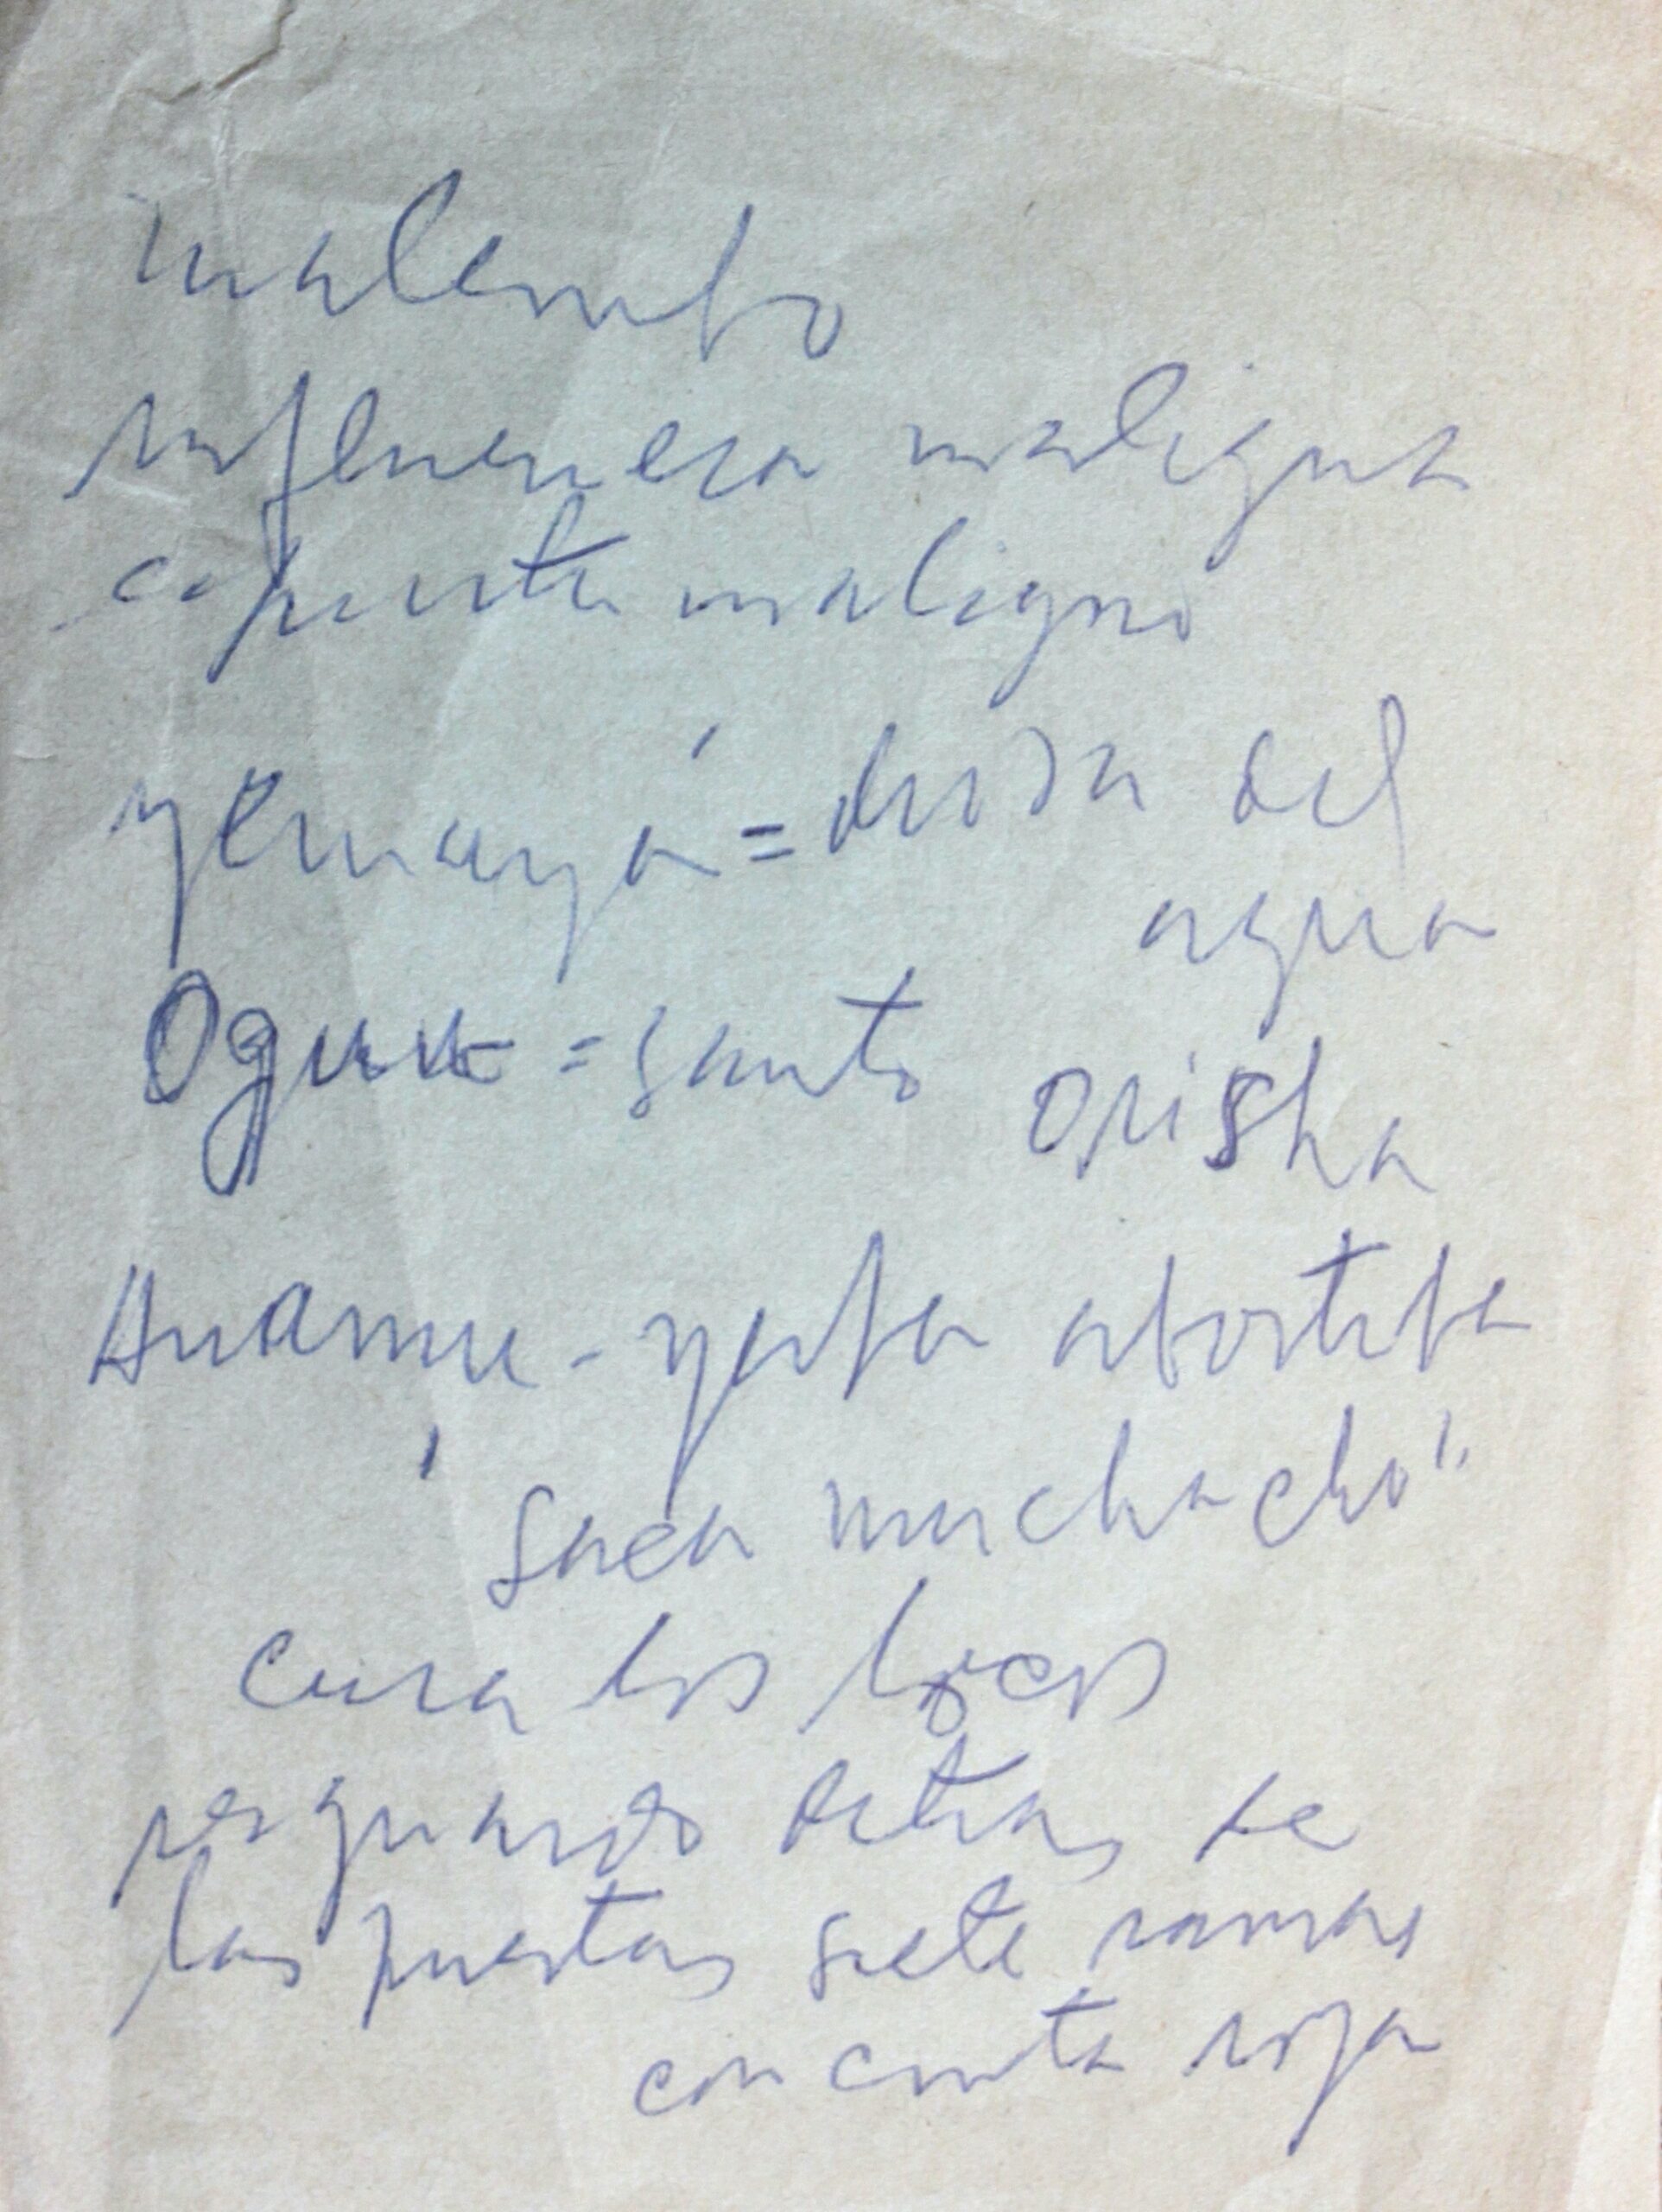 malembo
influencia maligna
espiritu maligno
yemayá = diosa del
agua
Ogun = santo orisha
Anamu - yerba abortiba
"saca muchacho"
cura los locos
resguardo detras de
las puertas siete ramas
con cinta roja